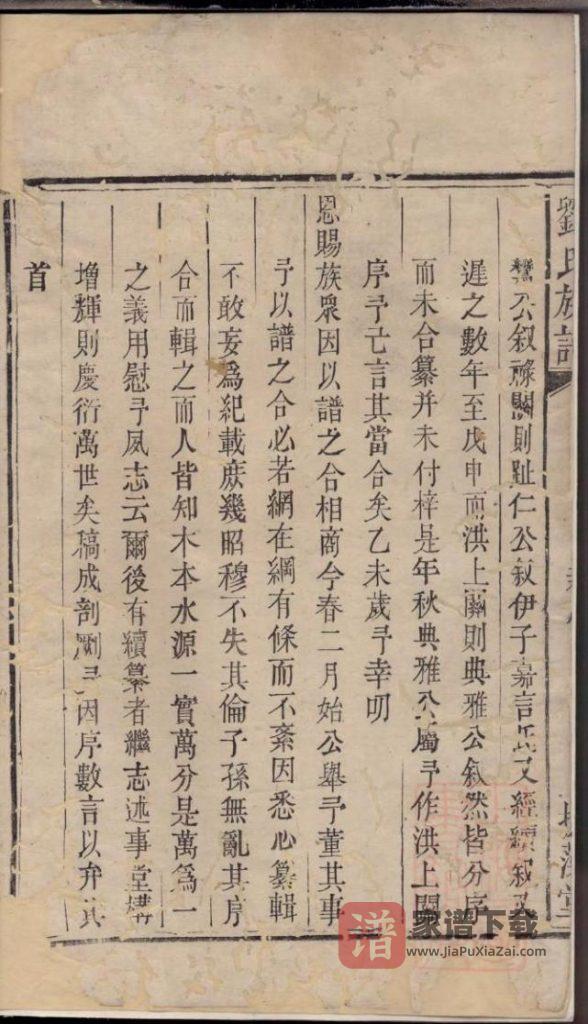 劉氏族譜
公叙關則趾仁公叙伊子嘉言氏又經續叙及
遲之數年至戊申而洪上關則典雅公叙然皆分序
而未合纂并未付梓是年秋典雅公屬予作洪上關
序予已言其當合矣乙未歲予幸叨
恩賜族衆因以譜之合相商今春二月始公舉予董其事
予以譜之合必若網在綱有條而不紊因悉心纂輯
不敢妄爲紀載庶幾昭穆不失其倫子孫無亂其序
合而輯之而人皆知木本水源一實萬分是萬爲一
之義用慰予夙志云爾後有續纂者繼志述事堂構
增輝則慶衍萬世矣稿成剖劂予因序數言以弁其
首
谱
家谱下载
www.JiaPuXiaZai.com